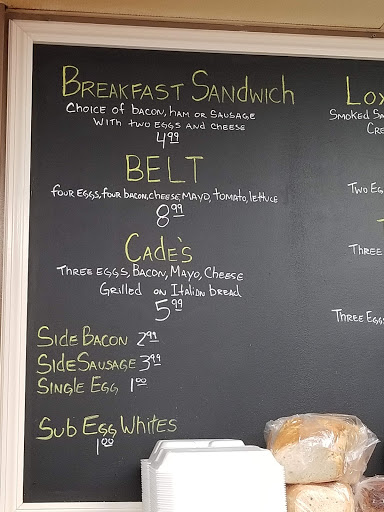 BREAKFAST SANDWICH
CHOICE OF BACON, HAM OR SAUSAGE
WITH TWO EGGS AND CHEESE
4.99
BELT
FOUR EGGS, FOUR BACON, CHEESE, MAYO, TOMATO, LETTUCE
8.99
CADE'S
THREE EGGS, BACON, MAYO, CHEESE
GRILLED ON ITALIAN BREAD
5.99
SIDE BACON 2.99
SIDE SAUSAGE 3.99
SINGLE EGG 1.00
SUB EGG WHITES
1.00
LOX
SMOKED SA
CRE
TWO EG
THREE
THREE EGGS